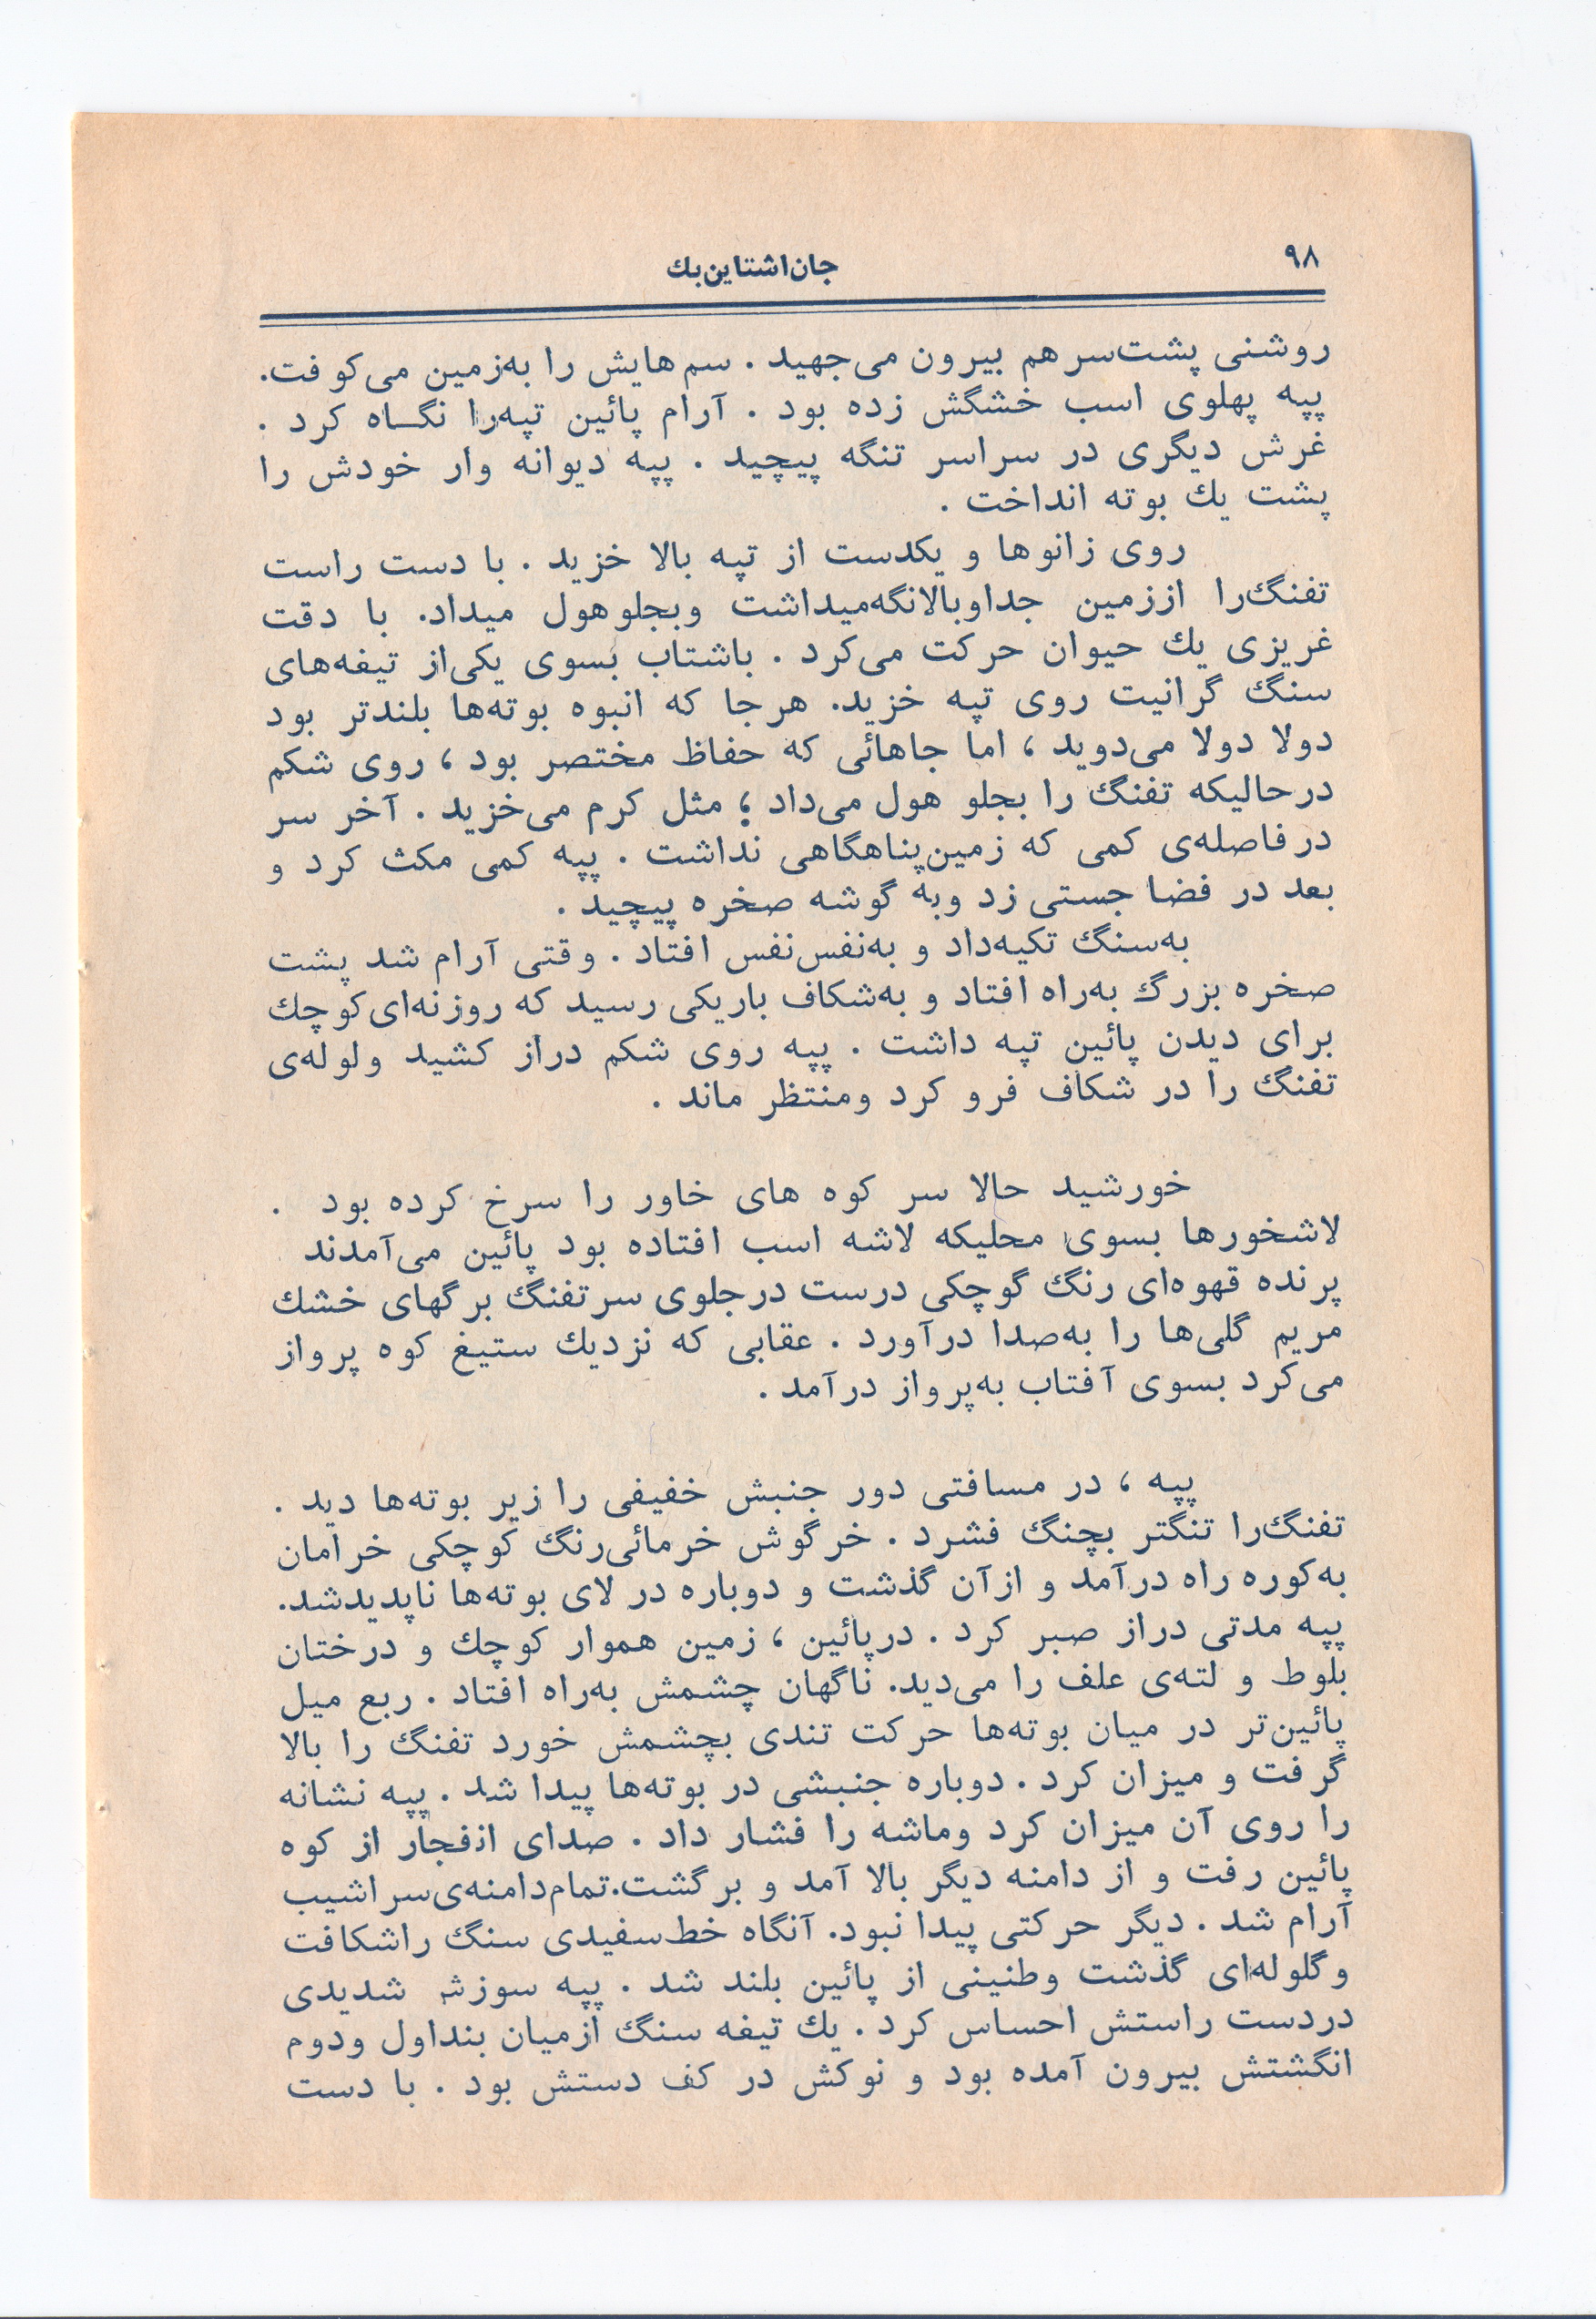 ۹۸
جان‌اشتاین‌بك
روشنی پشت‌سر هم بیرون می‌جهید . سم‌هایش را به‌زمین می‌کوفت.
پپه پهلوی اسب خشگش زده بود . آرام پائین تپه‌را نگــاه کرد .
غرش دیگری در سراسر تنگه پیچید . پپه دیوانه وار خودش را
پشت یك بوته انداخت .
روی زانوها و یکدست از تپه بالا خزید . با دست راست
تفنگ‌را اززمین جداوبالانگه‌میداشت وبجلوهول میداد. با دقت
غریزی یك حیوان حرکت می‌کرد . باشتاب بسوی یکی‌از تیفه‌های
سنگ گرانیت روی تپه خزید. هرجا که انبوه بوته‌ها بلندتر بود
دولا دولا می‌دوید ، اما جاهائی که حفاظ مختصر بود ، روی شکم
درحالیکه تفنگ را بجلو هول می‌داد ؛ مثل کرم می‌خزید . آخر سر
درفاصله‌ی کمی که زمین‌پناهگاهی نداشت . پپه کمی مکث کرد و
بعد در فضا جستی زد وبه گوشه صخره پیچید .
به‌سنگ تکیه‌داد و به‌نفس‌نفس افتاد . وقتی آرام شد پشت
صخره بزرگ به‌راه افتاد و به‌شکاف باریکی رسید که روزنه‌ای‌کوچك
برای دیدن پائین تپه داشت . پپه روی شکم دراز کشید ولوله‌ی
تفنگ را در شکاف فرو کرد ومنتظر ماند .
خورشید حالا سر کوه های خاور را سرخ کرده بود .
لاشخورها بسوی محلیکه لاشه اسب افتاده بود پائین می‌آمدند
پرنده قهوه‌ای رنگ گوچکی درست درجلوی سرتفنگ برگهای خشك
مریم گلی‌ها را به‌صدا درآورد . عقابی که نزدیك ستیغ کوه پرواز
می‌کرد بسوی آفتاب به‌پرواز درآمد .
پپه ، در مسافتی دور جنبش خفیفی را زیر بوته‌ها دید .
تفنگ‌را تنگتر بچنگ فشرد . خرگوش خرمائی‌رنگ کوچکی خرامان
به‌کوره راه درآمد و ازآن گذشت و دوباره در لای بوته‌ها ناپدیدشد.
پپه مدتی دراز صبر کرد . درپائین ، زمین هموار کوچك و درختان
بلوط و لته‌ی علف را می‌دید. ناگهان چشمش به‌راه افتاد . ربع میل
پائین‌تر در میان بوته‌ها حرکت تندی بچشمش خورد تفنگ را بالا
گرفت و میزان کرد . دوباره جنبشی در بوته‌ها پیدا شد . پپه نشانه
را روی آن میزان کرد وماشه را فشار داد . صدای انفجار از کوه
پائین رفت و از دامنه دیگر بالا آمد و برگشت.تمام‌دامنه‌ی‌سراشیب
آرام شد . دیگر حرکتی پیدا نبود. آنگاه خط‌سفیدی سنگ راشکافت
وگلوله‌ای گذشت وطنینی از پائین بلند شد . پپه سوزش شدیدی
دردست راستش احساس کرد . یك تیفه سنگ ازمیان بنداول ودوم
انگشتش بیرون آمده بود و نوکش در کف دستش بود . با دست